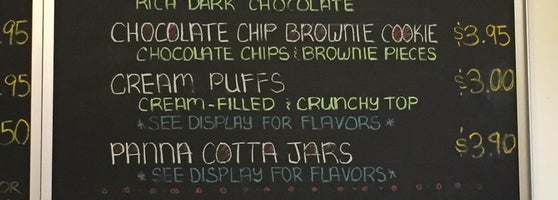 RICH DARK CHOCOLATE
.95 CHOCOLATE CHIP BROWNIE COOKIE $3.95
CHOCOLATE CHIPS & BROWNIE PIECES
.95 CREAM PUFFS $3.00
CREAM-FILLED & CRUNCHY TOP
50 *SEE DISPLAY FOR FLAVORS*
PANNA COTTA JARS $3.90
OR *SEE DISPLAY FOR FLAVORS*